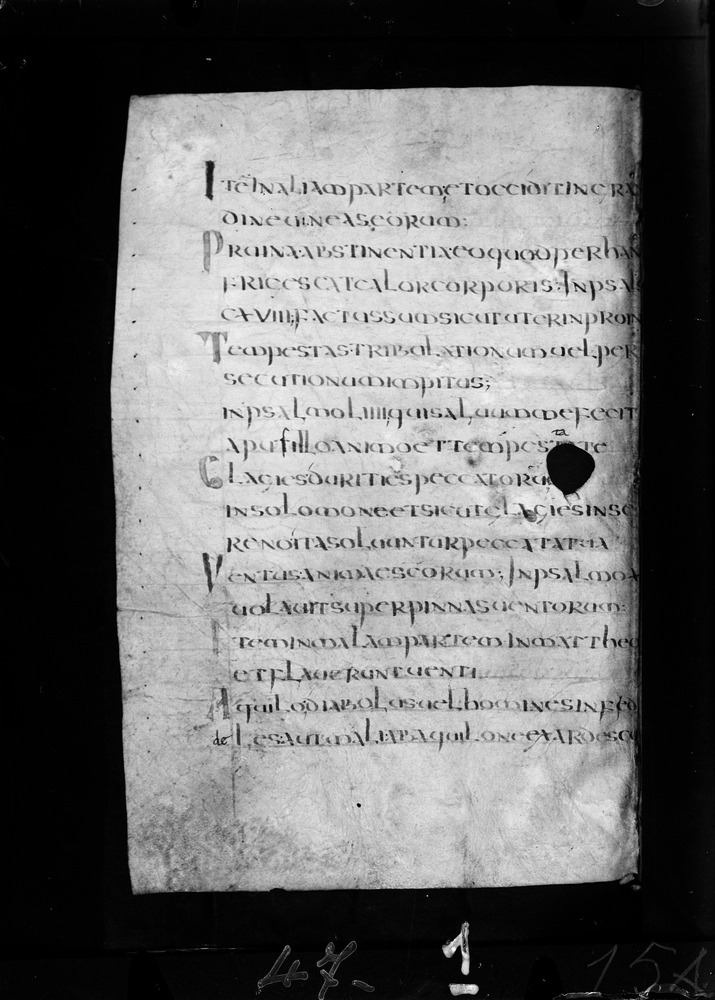 ITEINALIAMPARTEMETOCCIDITINGRA
DINEUINEASEORUM:
PRUINAABSTINENTIAEOQUODPERHAN
FRIGESCATCALORCORPORIS:INPSAL
CXVIII;FACTUSSUMSICUTUTERINPRUIN
TEMPESTASTRIBULATIONUMUELPER
SECUTIONUMIMPITUS;
INPSALMOLIIIIQUISALUUMMEFECIT
APUSILLOANIMOETTEMPESTATE
ta
GLACIESDURITIESPECCATORUM
INSOLOMONEETSICUTGLACIESINSE
RENOITASOLUUNTURPECCATATUA
VENTUSANIMAESCORUM;INPSALMO
UOLAUITSUPERPINNASUENTORUM:
ITEMINMALAMPARTEMINMATTHEO
ETFLAUERUNTUENTI
AQUILODIABOLUSUELHOMINESINFED
de LESAUTMALIABAQUILONEEXARDESC
47- 1 154